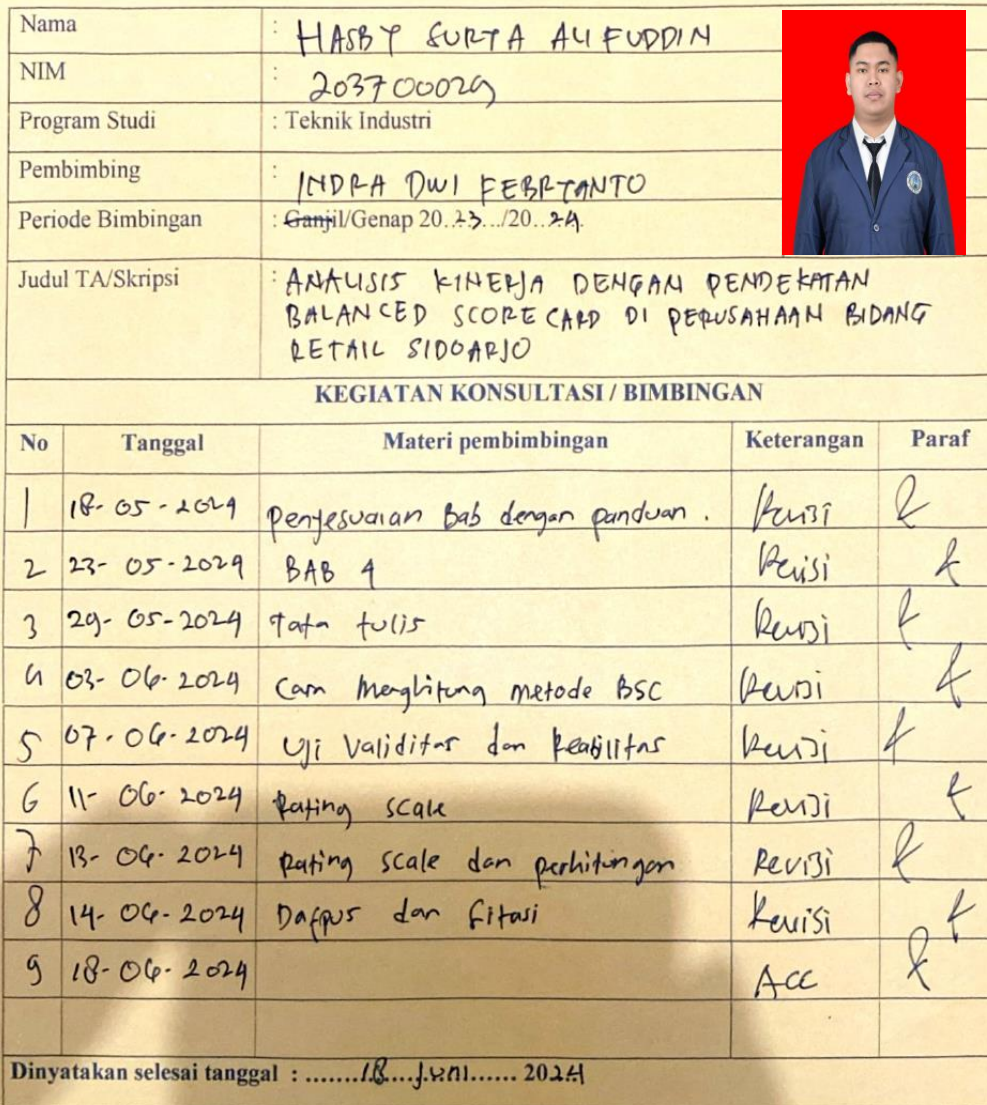 Nama : HASBY SURYA ALIFUDDIN
NIM : 203700029
Program Studi : Teknik Industri
Pembimbing : INDRA DWI FEBRYANTO
Periode Bimbingan : Ganjil/Genap 20..23.../20..24.
Judul TA/Skripsi : ANALISIS KINERJA DENGAN PENDEKATAN
BALANCED SCORE CARD DI PERUSAHAAN BIDANG
RETAIL SIDOARJO
KEGIATAN KONSULTASI / BIMBINGAN
No Tanggal Materi pembimbingan Keterangan Paraf
1 18-05-2024 Penyesuaian Bab dengan panduan. Revisi
2 23-05-2024 BAB 4 Revisi
3 29-05-2024 Tata tulis Revisi
4 03-06-2024 Cara Menghitung metode BSC Revisi
5 07-06-2024 Uji Validitas dan Reabilitas Revisi
6 11-06-2024 Rating scale Revisi
7 13-06-2024 Rating scale dan perhitungan Revisi
8 14-06-2024 Dafpus dan Sitasi Revisi
9 18-06-2024 ACC
Dinyatakan selesai tanggal : .......18....Juni...... 2024